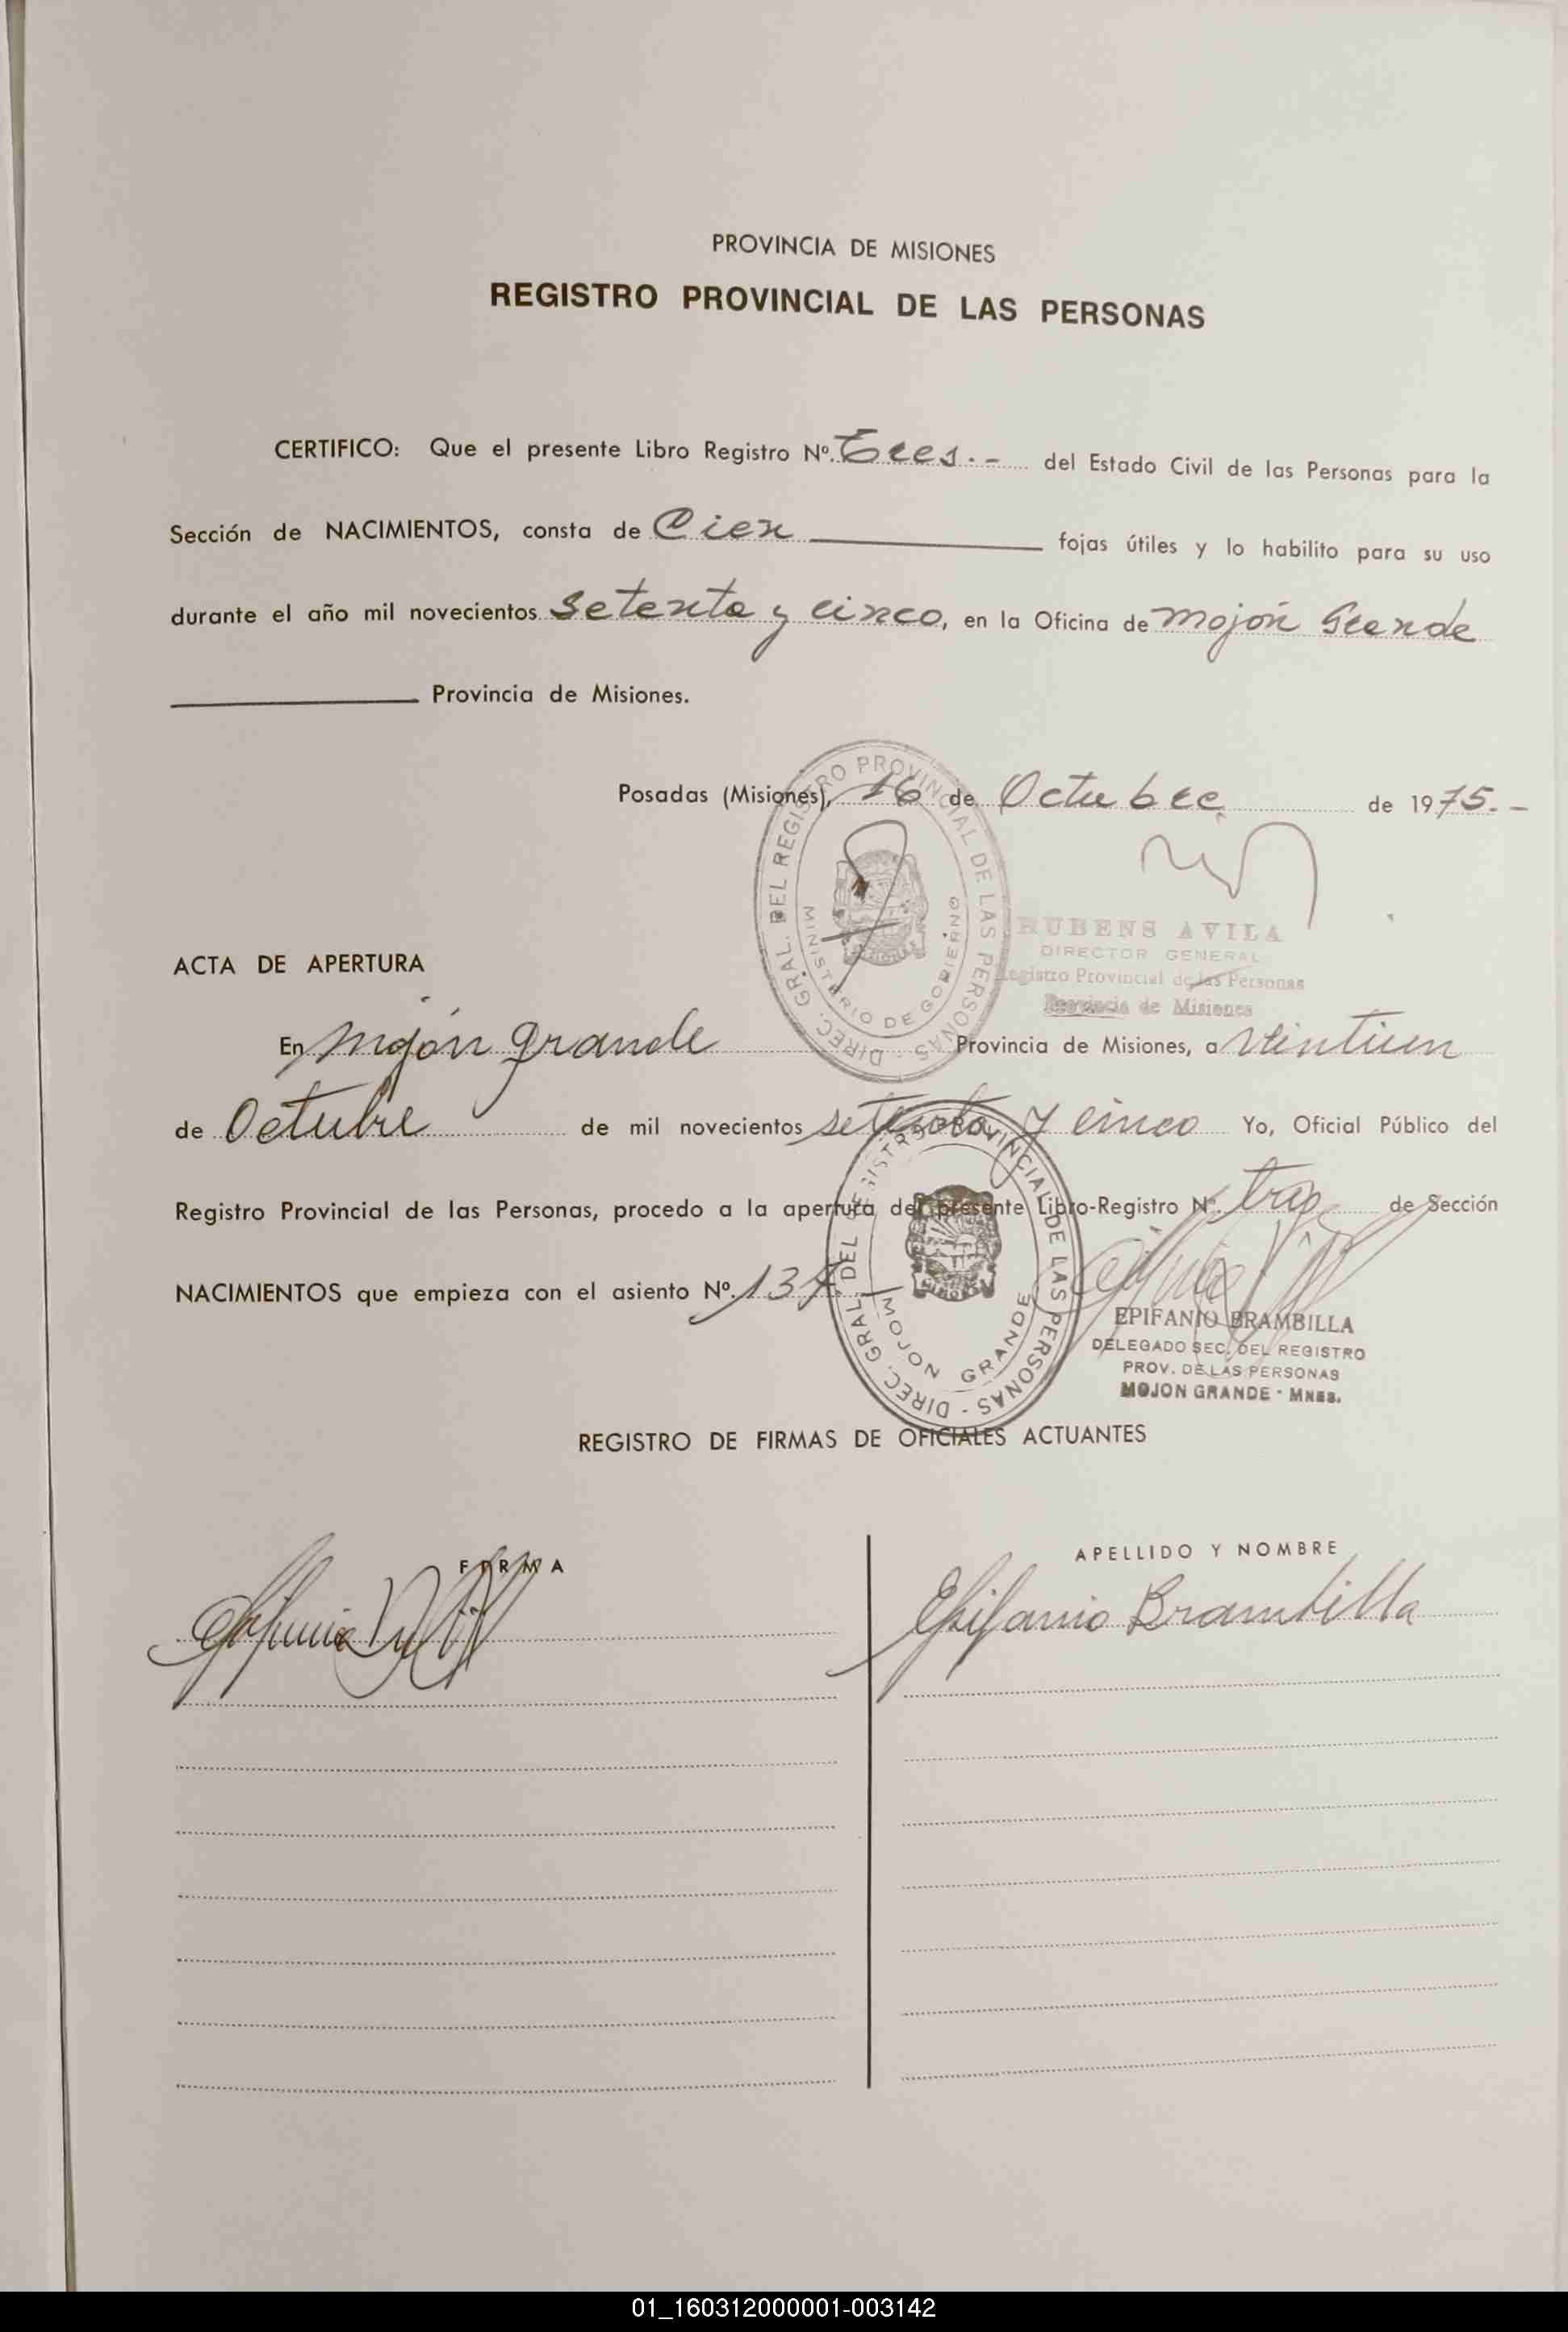 PROVINCIA DE MISIONES
REGISTRO PROVINCIAL DE LAS PERSONAS
CERTIFICO: Que el presente Libro Registro Nº. Tres.- del Estado Civil de las Personas para la
Sección de NACIMIENTOS, consta de Cien fojas útiles y lo habilito para su uso
durante el año mil novecientos setenta y cinco, en la Oficina de Mojón Grande
Provincia de Misiones.
Posadas (Misiones), 16 de Octubre de 1975.-
DIREC. GRAL. DEL REGISTRO PROVINCIAL DE LAS PERSONAS
MINISTERIO DE GOBIERNO
RUBENS AVILA
DIRECTOR GENERAL
Registro Provincial de las Personas
Provincia de Misiones
ACTA DE APERTURA
En Mojón grande Provincia de Misiones, a veintiun
de Octubre de mil novecientos setenta y cinco Yo, Oficial Público del
Registro Provincial de las Personas, procedo a la apertura del presente Libro-Registro Nº. tres de Sección
NACIMIENTOS que empieza con el asiento Nº. 137.
DIREC. GRAL. DEL REGISTRO PROVINCIAL DE LAS PERSONAS
MOJON GRANDE
EPIFANIO BRAMBILLA
DELEGADO SEC. DEL REGISTRO
PROV. DE LAS PERSONAS
MOJON GRANDE - MNES.
REGISTRO DE FIRMAS DE OFICIALES ACTUANTES
FIRMA
APELLIDO Y NOMBRE
Epifanio Brambilla
01_160312000001-003142